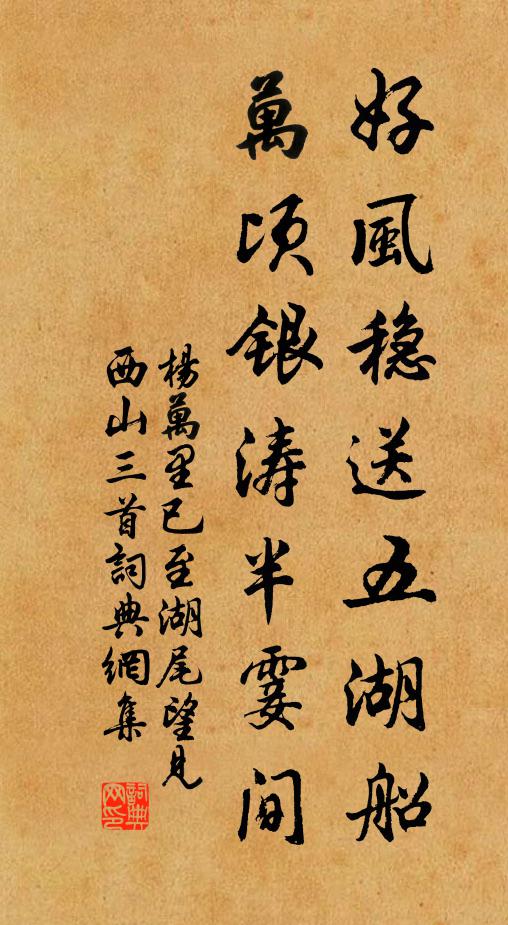 好風穏送五湖船
萬頃銀濤半霎间
楊萬里已至湖尾望見
西山三首詞典網集
詞典
网印